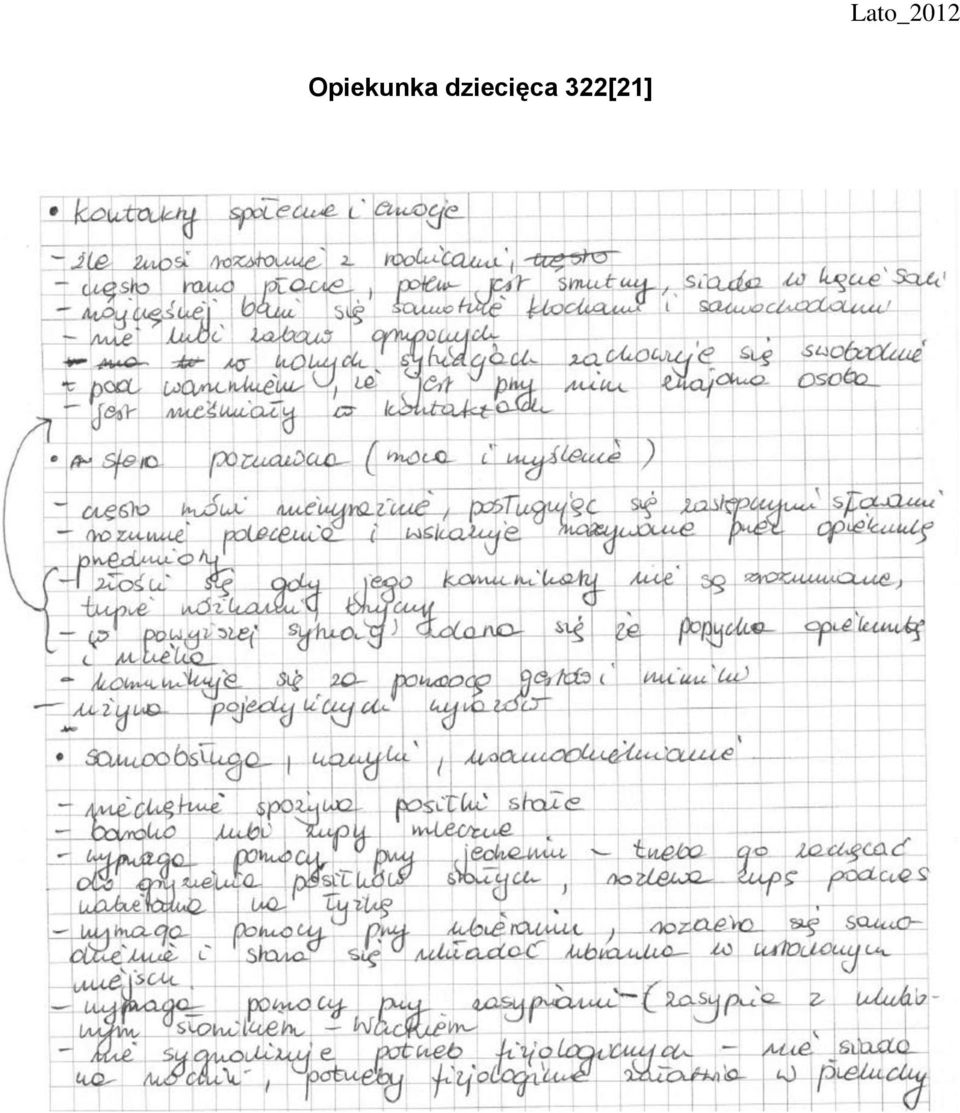 Lato_2012
Opiekunka dziecięca 322[21]
• kontakty społeczne i emocje
- źle znosi rozstanie z rodzicami, często
- często rano płacze, potem jest smutny, siada w kącie sali
- najczęściej bawi się samotnie klockami i samochodami
- nie lubi zabaw grupowych
- w nowych sytuacjach zachowuje się swobodnie
- pod warunkiem, że jest przy nim znajoma osoba
- jest nieśmiały w kontaktach
• sfera poznawcza (mowa i myślenie)
- często mówi niewyraźnie, posługując się zastępczymi słowami
- rozumie polecenia i wskazuje nazywane przez opiekunkę
przedmioty
- złości się gdy jego komunikaty nie są zrozumiane,
tupie nóżkami krzyczy
- w powyższej sytuacji zdarza się że popycha opiekunkę
i ucieka
- komunikuje się za pomocą gestów i mimiki
- używa pojedynczych wyrazów
• samoobsługa, nawyki, usamodzielnianie
- niechętnie spożywa posiłki stałe
- bardzo lubi zupy mleczne
- wymaga pomocy przy jedzeniu - trzeba go zachęcać
do gryzienia posiłków stałych, rozlewa zupę podczas
nabierania na łyżkę
- wymaga pomocy przy ubieraniu, rozbiera się samo-
dzielnie i stara się układać ubranka w ustalonym
miejscu
- wymaga pomocy przy zasypianiu - (zasypia z ulubio-
nym słonikiem - Wackiem
- nie sygnalizuje potrzeb fizjologicznych - nie siada
na nocnik, potrzeby fizjologiczne załatwia w pieluchy